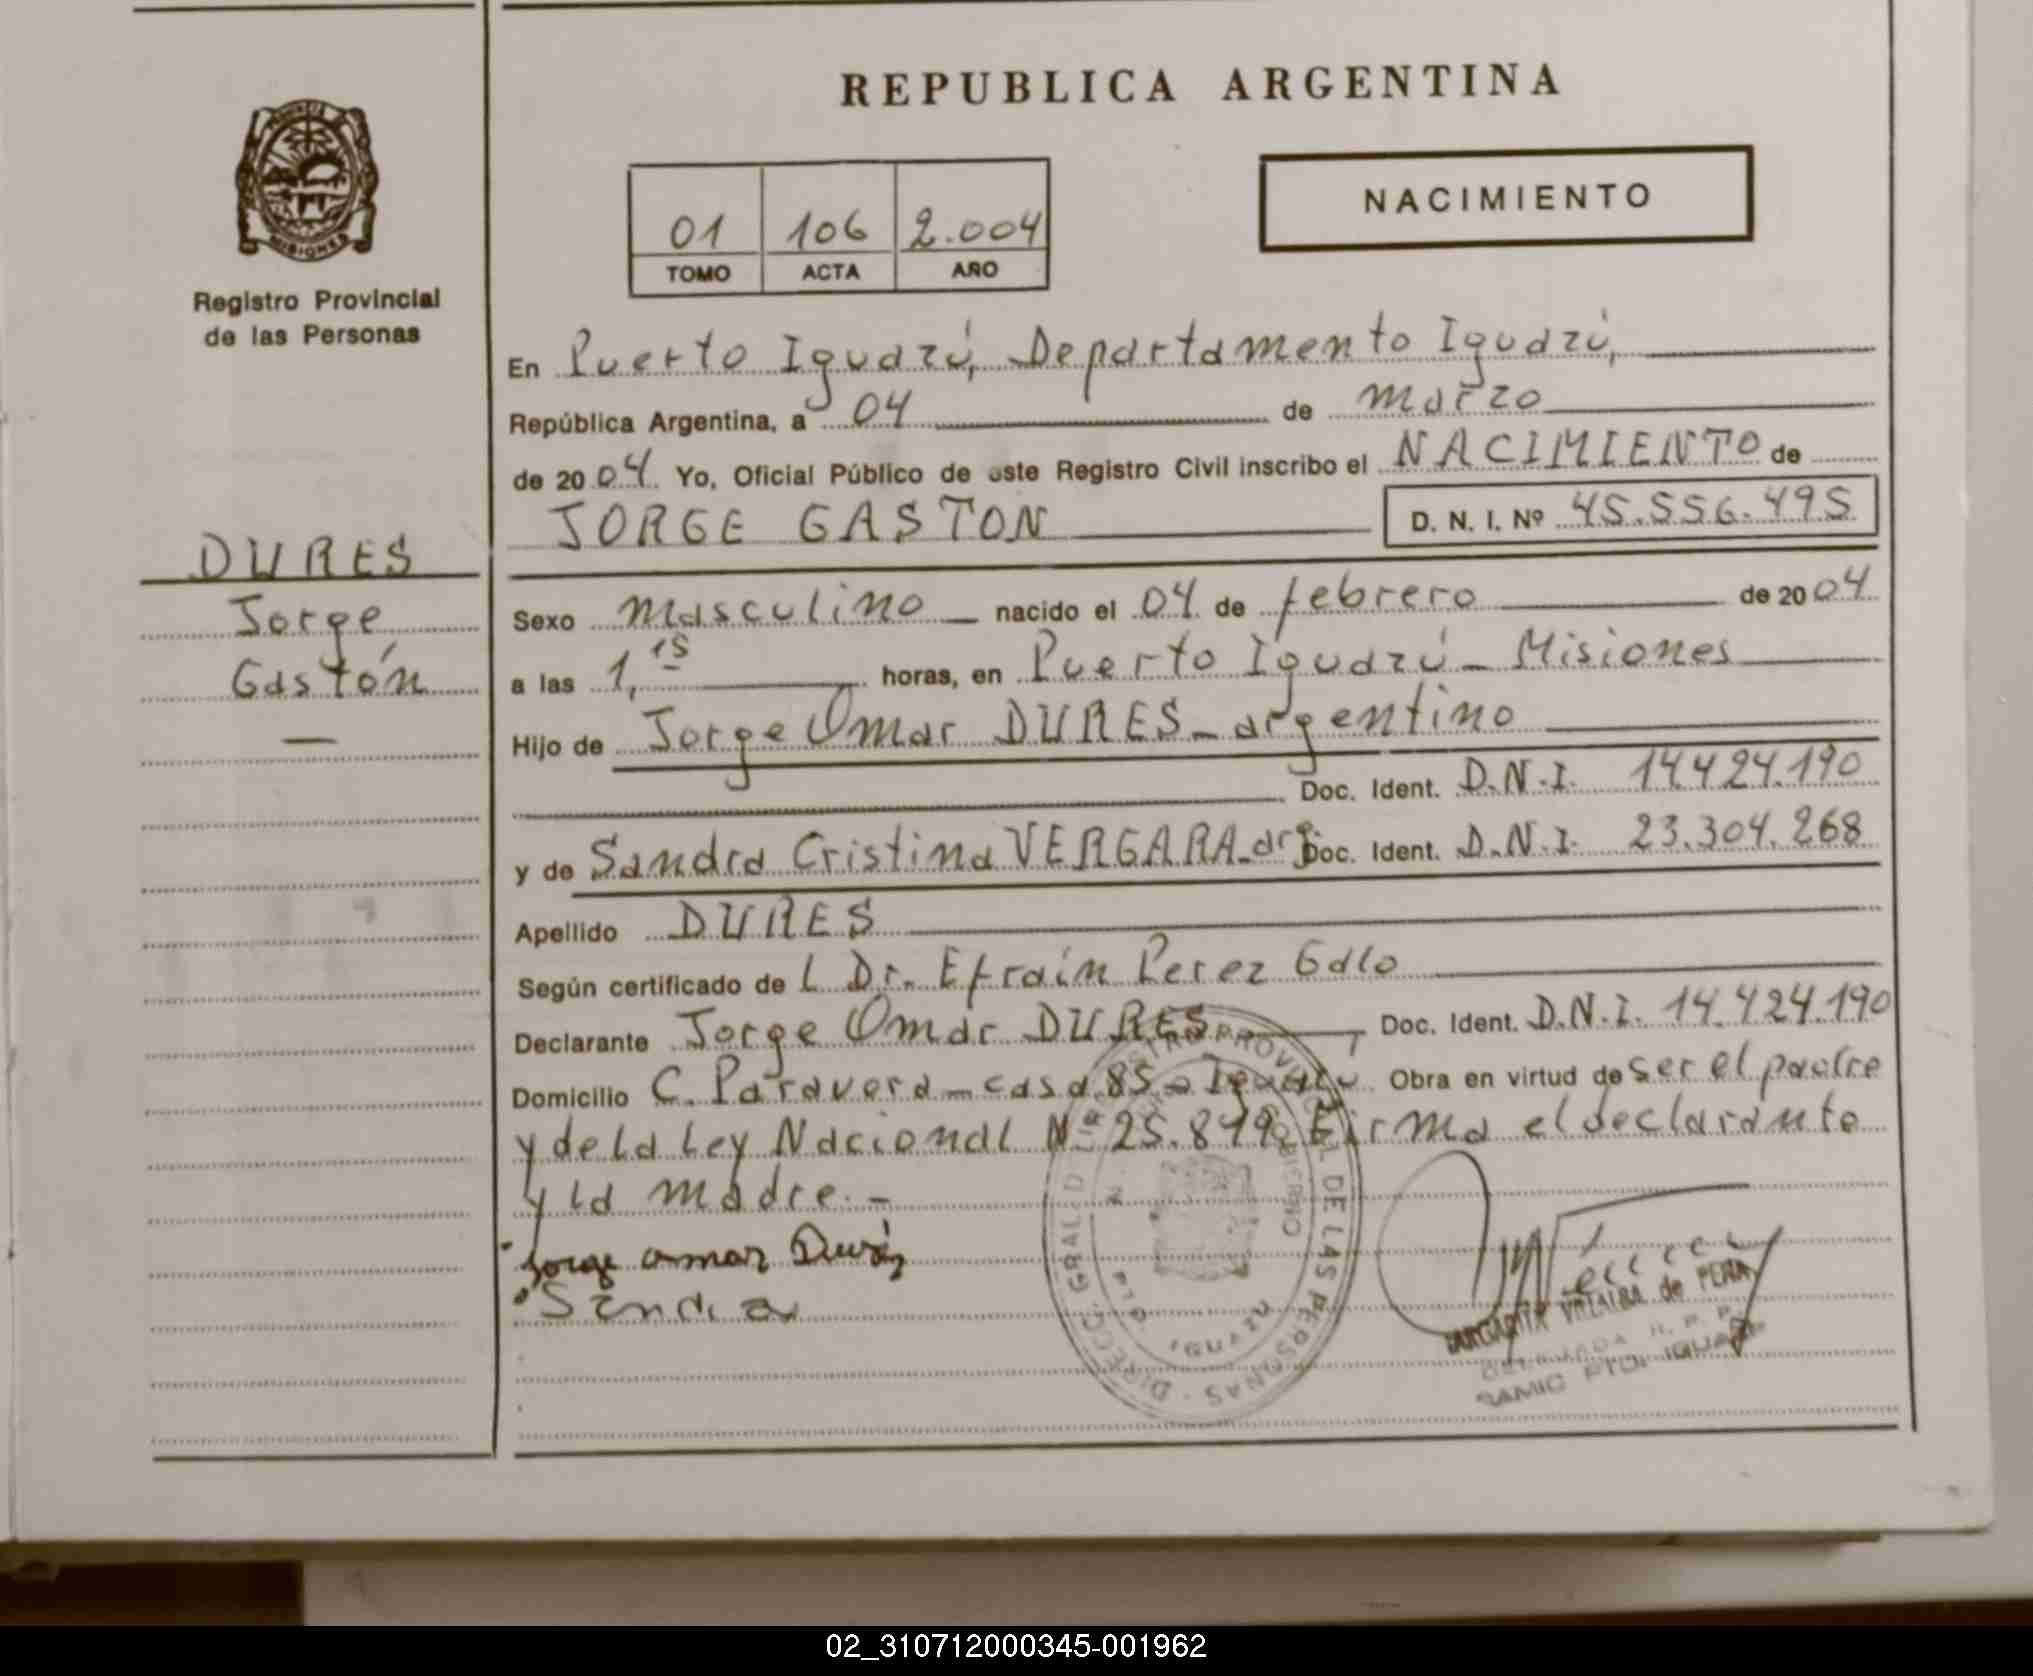 REPUBLICA ARGENTINA
NACIMIENTO
01 106 2.004
TOMO ACTA AÑO
MISIONES
Registro Provincial
de las Personas
En Puerto Iguazú, Departamento Iguazú,
República Argentina, a 04 de marzo
de 2004 Yo, Oficial Público de este Registro Civil inscribo el NACIMIENTO de
JORGE GASTON D. N. I. Nº 45.556.495
DURES
Jorge
Gastón
Sexo masculino nacido el 04 de febrero de 2004
a las 1,15 horas, en Puerto Iguazú - Misiones
Hijo de Jorge Omar DURES - argentino
Doc. Ident. D.N.I. 14.424.190
y de Sandra Cristina VERGARA - arg Doc. Ident. D.N.I. 23.304.268
Apellido DURES
Según certificado de l Dr. Efraín Perez Galo
Declarante Jorge Omar DURES Doc. Ident. D.N.I. 14.424.190
Domicilio C. Paravera - casa 85 - Iguazú Obra en virtud de ser el padre
y de la Ley Nacional Nº 25.819 Firma el declarante
y la madre. -
Jorge Omar Durés
Sandra
DIRECC. GRAL. DEL REGISTRO PROVINCIAL DE LAS PERSONAS
MARGARITA VILLALBA de PEÑA
DELEGADA R. P. P.
SAMIC PTO. IGUAZU
02_310712000345-001962